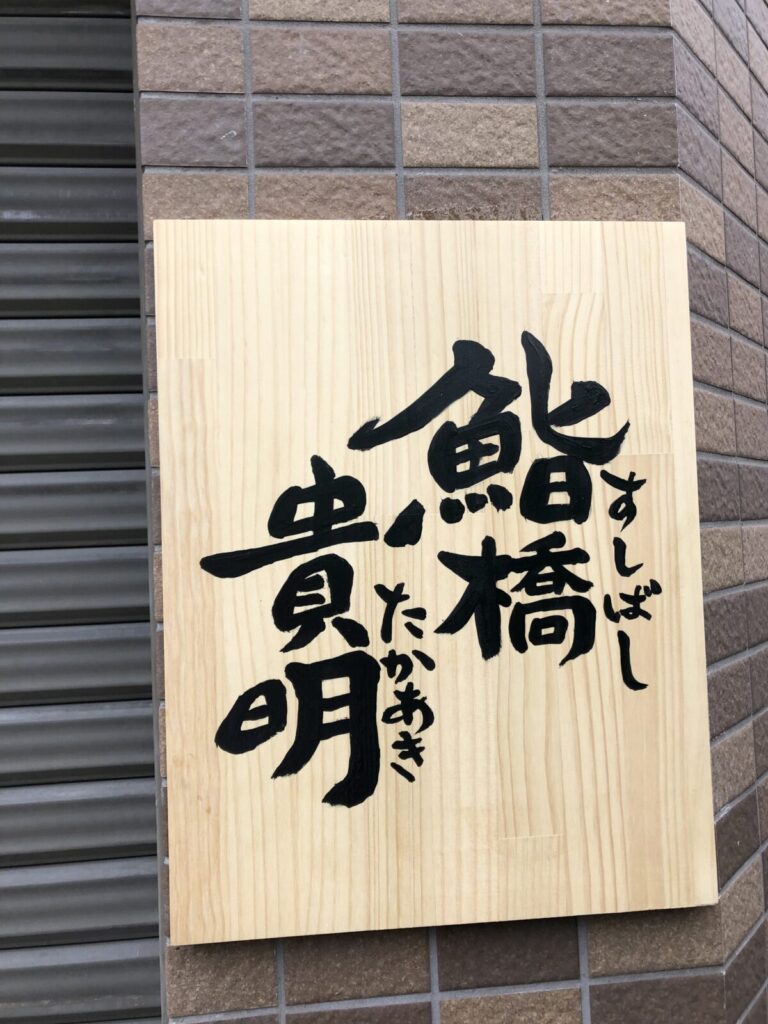 鮨橋
すしばし
貴明
たかあき